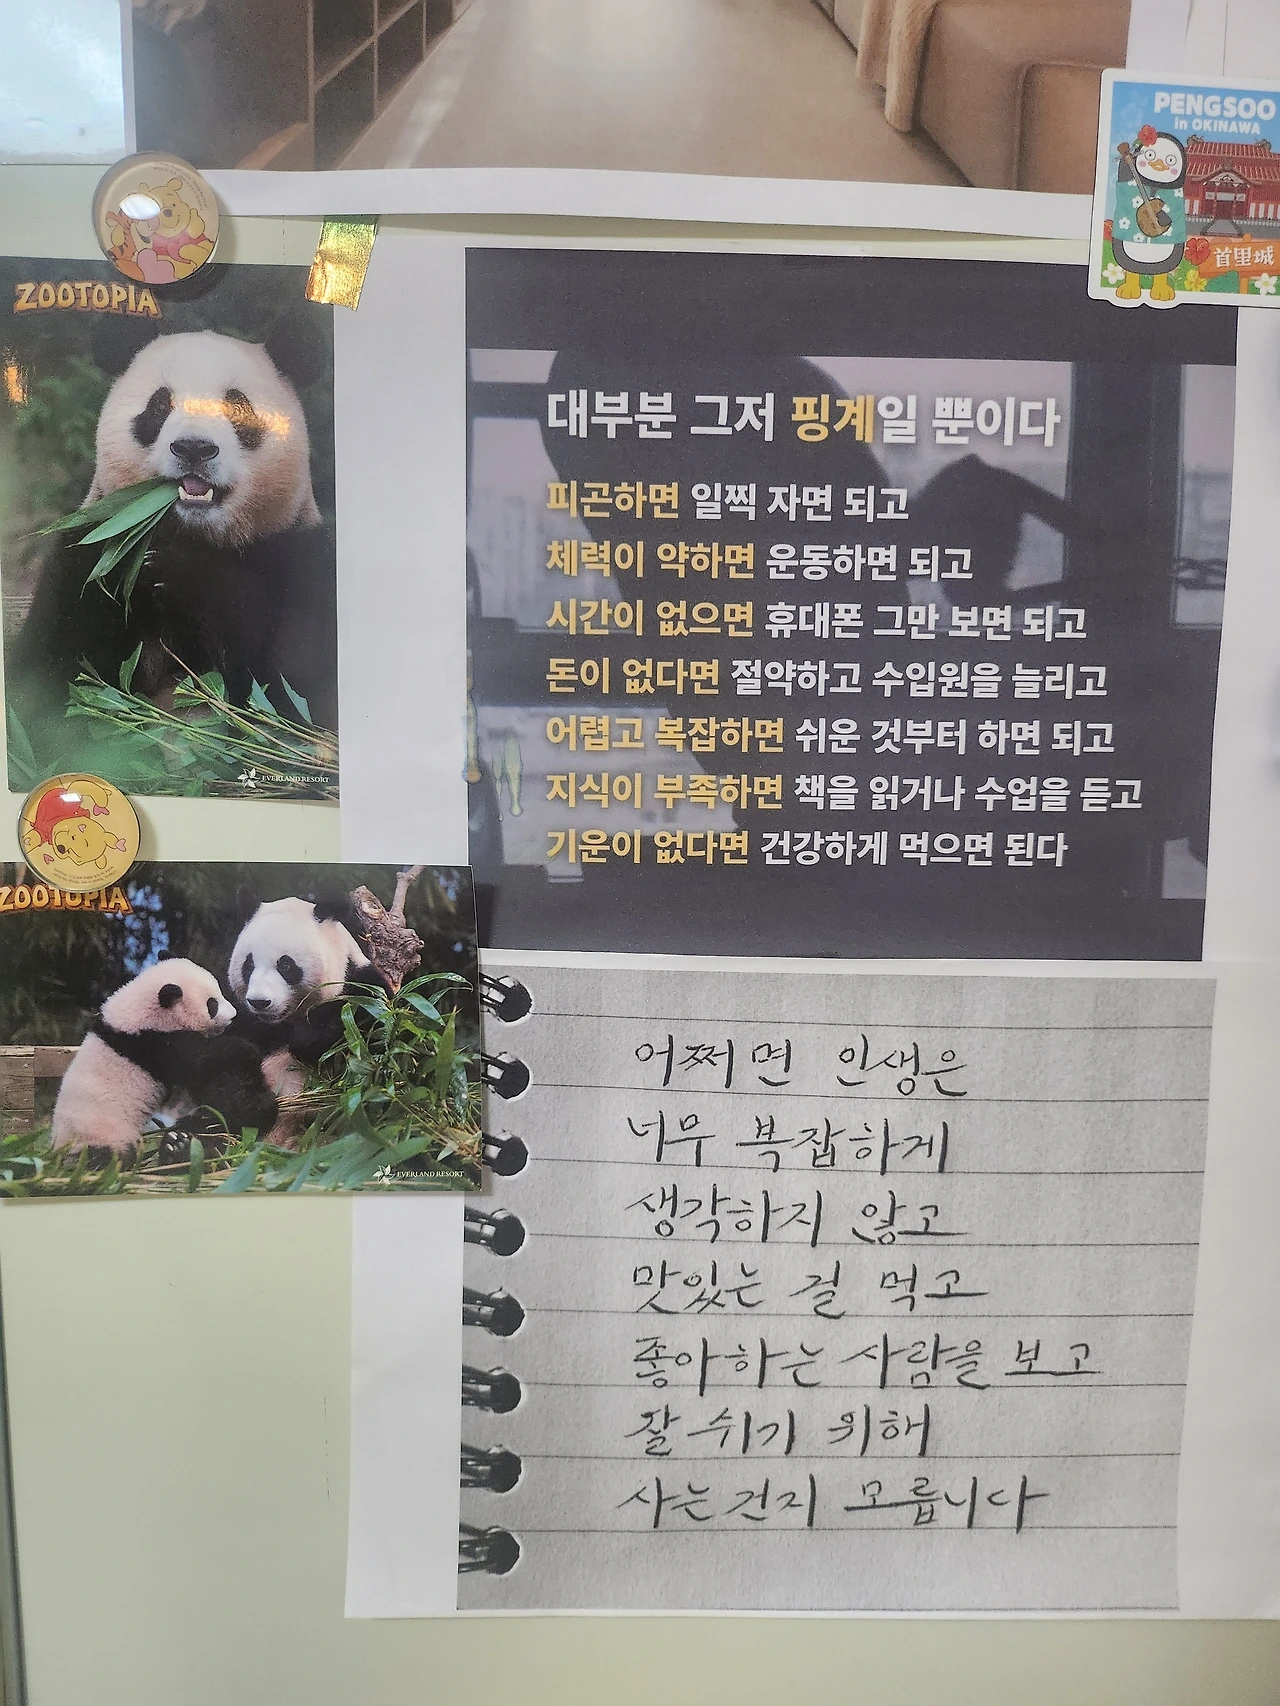 PENGSOO
in OKINAWA
首里城
ZOOTOPIA
EVERLAND RESORT
ZOOTOPIA
EVERLAND RESORT
대부분 그저 핑계일 뿐이다
피곤하면 일찍 자면 되고
체력이 약하면 운동하면 되고
시간이 없으면 휴대폰 그만 보면 되고
돈이 없다면 절약하고 수입원을 늘리고
어렵고 복잡하면 쉬운 것부터 하면 되고
지식이 부족하면 책을 읽거나 수업을 듣고
기운이 없다면 건강하게 먹으면 된다
어쩌면 인생은
너무 복잡하게
생각하지 않고
맛있는 걸 먹고
좋아하는 사람을 보고
잘 쉬기 위해
사는건지 모릅니다